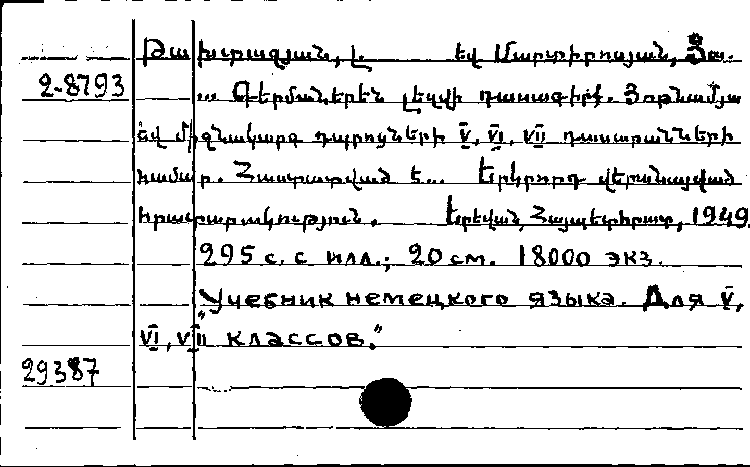 Թախտազյան, Լ. եվ Մարտիրոսյան, Ֆա.
2-8793 ... Գերմաներեն լեզվի դասագիրք. Յոթնամյա
եվ միջնակարգ դպրոցների V, VI, VII դասարանների
համար. Հաստատված է... Երկրորդ վերանայված
հրատարակություն. Երեվան, Հայպետհրատ, 1949.
295 с. с илл.; 20 см. 18000 экз.
"Учебник немецкого языка. Для V,
VI, VII классов."
29387